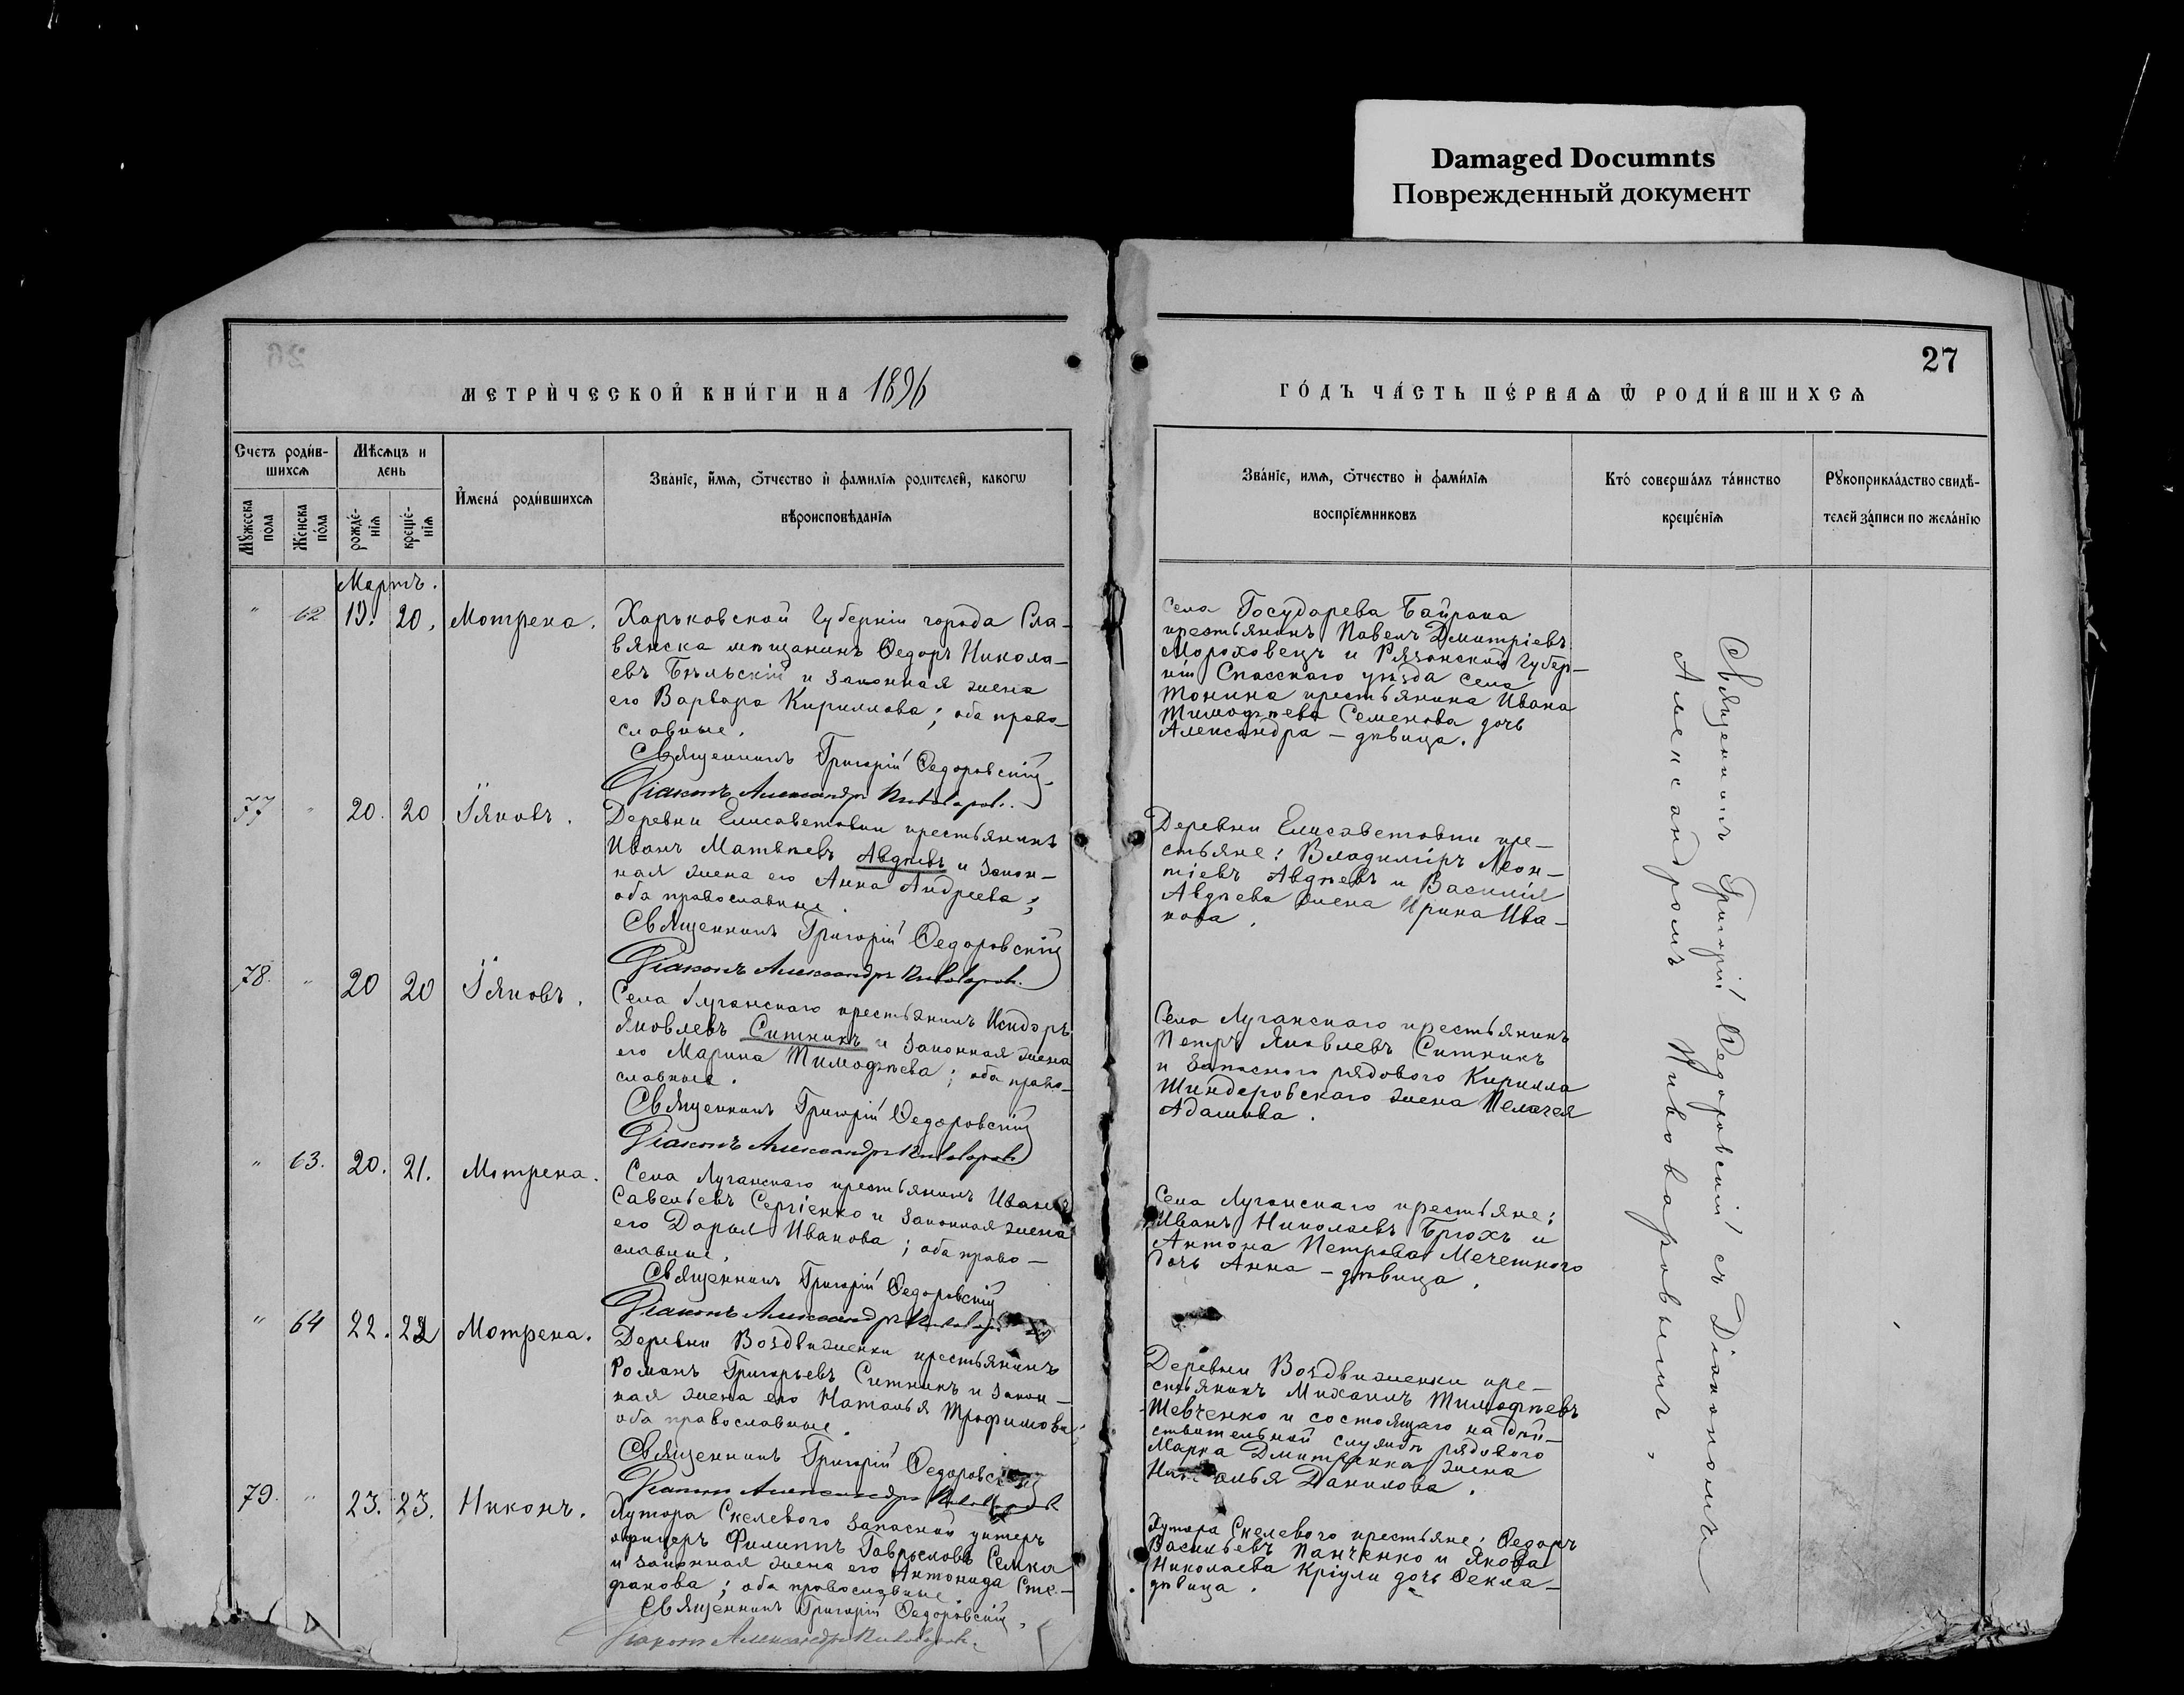 Damaged Documnts
Поврежденный документ
27
МЕТРИ́ЧЕСКОЙ КНИ́ГИ НА 1896
ГО́ДЪ ЧА́СТЬ ПЕ́РВАѦ Ѿ РОДИ́ВШИХСѦ
Счетъ роди́в-
шихсѧ
Мꙋжеска
пола
Женска
по́ла
Мѣсѧцъ и
день
рожде́-
нїѧ
креще́-
нїѧ
И҆мена́ роди́вшихсѧ
Зва́нїе, и҆́мѧ, ѻ҆́тчество и҆ фамилїѧ родителей, какогѡ
вѣроисповѣданїѧ
Зва́нїе, имѧ, ѻ҆́тчество и҆ фами́лїѧ
воспрїе́мниковъ
Кто́ соверша́лъ та́инство
креще́нїѧ
Рꙋкоприкла́дство свидѣ́-
телей за́писи по жела́нїю
Мартъ.
" 62 19. 20. Мотрена.
Харьковской Губерніи города Сла-
вянска мѣщанинъ Ѳедоръ Никола-
евъ Бѣльскій и законная жена
его Варвара Кириллова; оба право-
славные.
Священникъ Григорій Ѳедоровскій
Діаконъ Александръ Пивоваровъ.
Села Государева Байрака
крестьянинъ Павелъ Дмитріевъ
Мороховецъ и Рязанской Губер-
ніи Спасскаго уѣзда села
Тонина крестьянина Ивана
Тимофѣева Семенова дочь
Александра - дѣвица.
77 " 20. 20 Іяковъ.
Деревни Елисаветовки крестьянинъ
Иванъ Матвѣевъ Авдѣевъ и закон-
ная жена его Анна Андреева;
оба православные.
Священникъ Григорій Ѳедоровскій
Діаконъ Александръ Пивоваровъ.
Деревни Елисаветовки кре-
стьяне: Владиміръ Леон-
тіевъ Авдѣевъ и Василія
Авдѣева жена Ирина Ива-
нова.
78. " 20 20 Іяковъ.
Села Луганскаго крестьянинъ Исидоръ
Яковлевъ Ситникъ и законная жена
его Марина Тимофѣева; оба право-
славные.
Священникъ Григорій Ѳедоровскій
Діаконъ Александръ Пивоваровъ
Села Луганскаго крестьянинъ
Петръ Яковлевъ Ситникъ
и запаснаго рядового Кирилла
Шиндеровскаго жена Пелагея
Адамова.
" 63. 20. 21. Мотрена.
Села Луганскаго крестьянинъ Иванъ
Савельевъ Сергіенко и законная жена
его Дарья Иванова; оба право-
славные.
Священникъ Григорій Ѳедоровскій
Діаконъ Александръ
Села Луганскаго крестьяне:
Иванъ Николаевъ Брюхъ и
Антона Петрова Мечетного
дочь Анна - дѣвица.
" 64 22. 22 Мотрена.
Деревни Воздвиженки крестьянинъ
Романъ Григорьевъ Ситникъ и закон-
ная жена его Наталья Трофимова;
оба православные.
Священникъ Григорій Ѳедоровскій
Діаконъ Александръ Пивоваровъ
Деревни Воздвиженки кре-
стьянинъ Михаилъ Тимофѣевъ
Шевченко и состоящаго на дѣй-
ствительной службѣ рядового
Марка Дмитренка жена
Наталья Данилова.
79. " 23. 23. Никонъ.
Хутора Скелевого запасной унтеръ
офицеръ Филиппъ Гавриловъ Семка
и законная жена его Антонида Сте-
фанова; оба православные
Священникъ Григорій Ѳедоровскій.
Діаконъ Александръ Пивоваровъ.
Хутора Скелевого крестьяне: Ѳедоръ
Васильевъ Панченко и Якова
Николаева Кріули дочь Ѳекла-
дѣвица.
Священникъ Григорій Ѳедоровскій съ Діакономъ
Александромъ Пивоваровымъ.